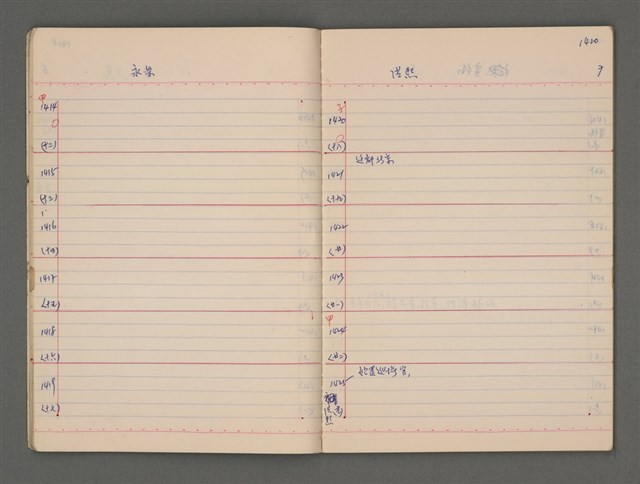 永樂
甲
1414
(十二)
1415
(十三)
1416
(十四)
1417
(十五)
1418
(十六)
1419
(十七)
1420
洪熙
9
子
1420
(十八)
遷都北京
1421
(十九)
1422
(廿)
1423
(廿一)
甲
1424
(廿二)
1425
洪
熙